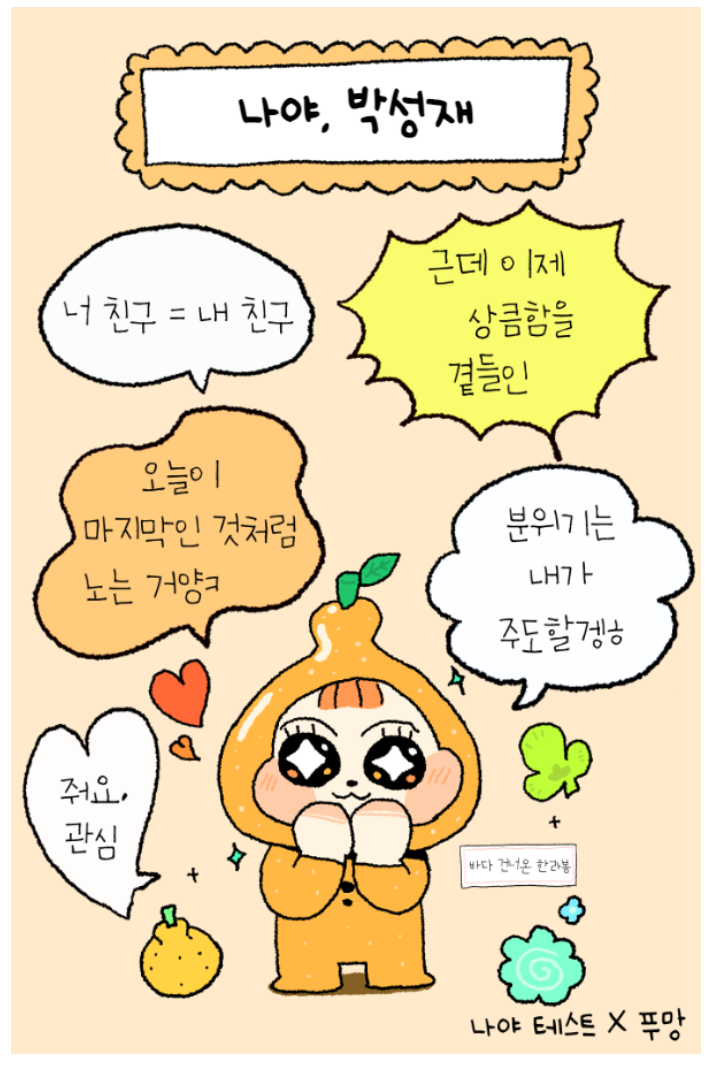 나야, 박성재
너 친구 = 내 친구
근데 이제
상큼함을
곁들인
오늘이
마지막인 것처럼
노는 거양ㅋ
분위기는
내가
주도할겡ㅎ
줘요,
관심
바다 건너온 한라봉
나야 테스트 X 푸망